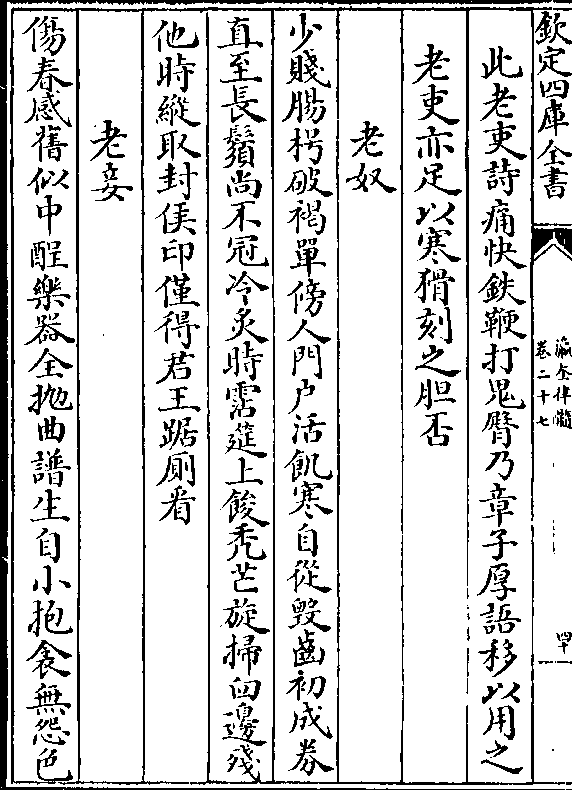 欽定四庫全書
瀛奎律髓
卷二十七
四十
此老吏詩痛快鉄鞭打鬼臀乃章子厚語移以用之
老吏亦足以寒猾刻之胆否
老奴
少賤腸枵破褐單傍人門户活飢寒自從毀齒初成券
直至長鬚尚不冠冷炙時霑筵上餕秃芒旋掃臼邊殘
他時縱取封侯印僅得君王踞厠看
老妾
傷春感舊似中酲樂器全抛曲譜生自小抱衾無怨色